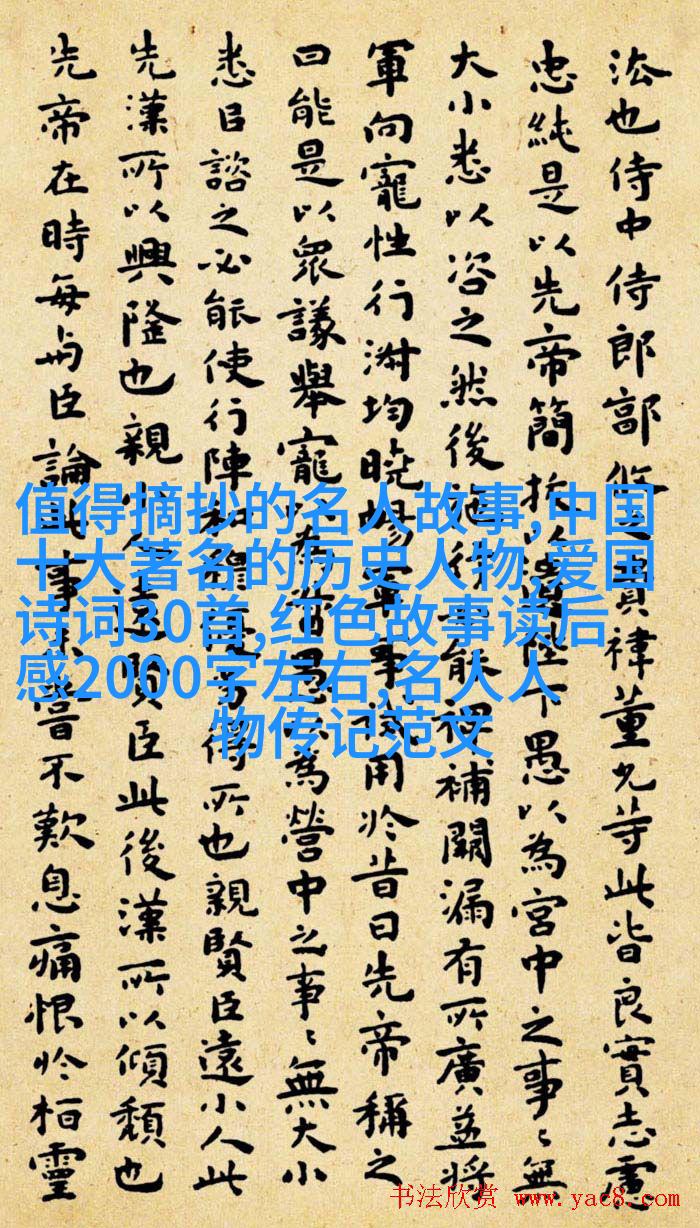 法也侍中侍郎郭攸之費禕董允等此皆良實志慮
忠純是以先帝簡拔以遺陛下愚以為宮中之事〻無
大小悉以咨之然後施行必能裨補闕漏有所廣益將
軍向寵性行淑均曉暢軍事試用於昔日先帝稱之
曰能是以衆議舉寵以為督愚以為營中之事〻無大小
悉以諮之必能使行陣和穆優劣得所也親賢臣遠小人此
先漢所以興隆也親小人遠賢臣此後漢所以傾頹也
先帝在時每與臣論此事未嘗不歎息痛恨於桓靈
值得摘抄的名人故事,中国
十大著名的历史人物,爱国
诗词30首,红色故事读后
感2000字左右,名人人
物传记范文
书法欣赏 www.yac8.com